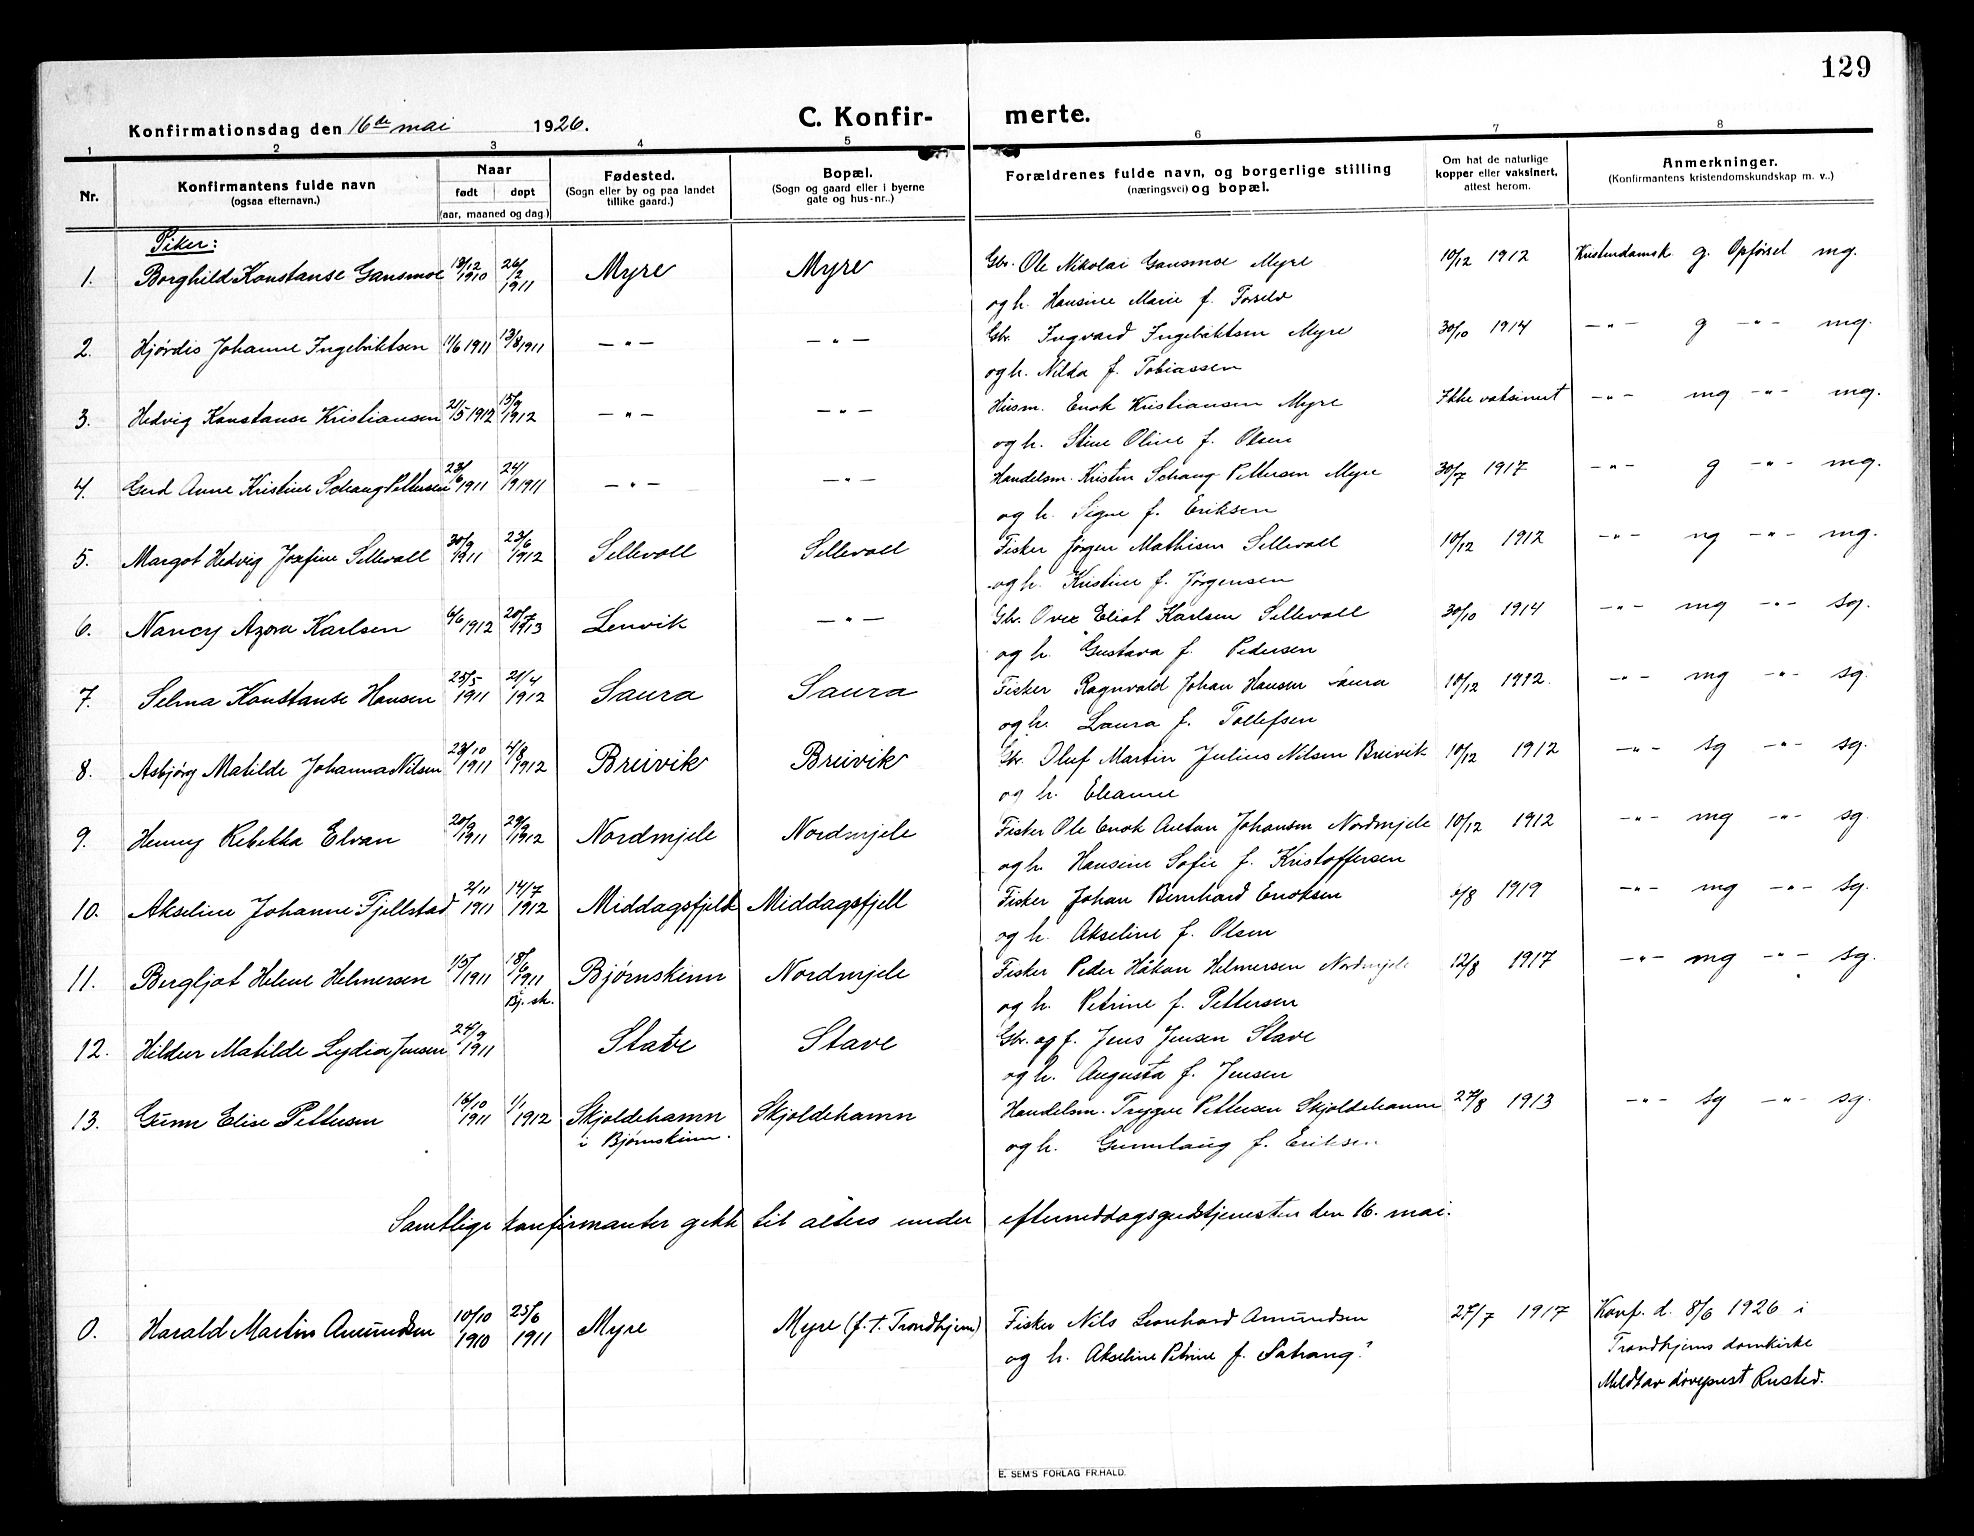 129
Konfirmationsdag den 16de mai 1926.
C. Konfirmerte.
1 2 3 4 5 6 7 8
Nr.
Konfirmantens fulde navn
(ogsaa efternavn.)
Naar
født døpt
(aar, maaned og dag)
Fødested.
(Sogn eller by og paa landet
tillike gaard.)
Bopæl.
(Sogn og gaard eller i byerne
gate og hus-nr.)
Forældrenes fulde navn, og borgerlige stilling
(næringsvei) og bopæl.
Om hat de naturlige
kopper eller vaksinert,
attest herom.
Anmerkninger.
(Konfirmantens kristendomskundskap m. v..)
Piker:
1. Borghild Konstanse Gansmoe 13/12 1910 26/2 1911 Myre Myre Gbr. Ole Nikolai Gansmoe Myre 10/12 1912 Kristendomsk. g. Opførsel mg.
og h. Hansine Marie f.
2. Hjørdis Johanne Ingebriktsen 11/6 1911 13/8 1911 —"— —"— Gbr. Ingvard Ingebriktsen Myre 30/10 1914 —"— g —"— mg.
og h. Nilda f. Tobiassen
3. Hedvig Konstanse Kristiansen 21/5 1912 15/9 1912 —"— —"— Husm. Enok Kristiansen Myre Ikke vaksinert —"— mg —"— mg.
og h. Stine Oline f. Olsen
4. Gerd Anne Kristine Schang Pettersen 23/6 1911 24/9 1911 —"— —"— Handelsm. Kristin Schang Pettersen Myre 30/7 1917 —"— g —"— mg.
og h. Signe f. Eriksen
5. Margot Hedvig Josefine Sellevoll 30/9 1911 23/6 1912 Sellevoll Sellevoll Fisker Jørgen Mathisen Sellevoll 10/12 1912 —"— ng —"— mg.
og h. Kristine f. Jørgensen
6. Nancy Azora Karlsen 6/6 1912 20/7 1913 Lenvik —"— Gbr. Over Eliot Karlsen Sellevoll 30/10 1914 —"— mg —"— sg.
og h. Gustava f. Pedersen
7. Selma Konstanse Hansen 25/5 1911 21/4 1912 Saura Saura Fisker Ragnvald Johan Hansen Saura 10/12 1912. —"— mg —"— sg.
og h. Laura f. Tollefsen
8. Asbjørg Matilde Johanna Nilsen 23/10 1911 4/8 1912 Breivik Breivik Gbr. Oluf Martin Julius Nilsen Breivik 10/12 1912 —"— sg —"— sg.
og h. Eleanne
9. Henny Rebekka Elvan 20/9 1911 29/9 1912 Nordmjele Nordmjele Fisker Ole Enok Anton Johansen Nordmjele 10/12 1912 —"— mg —"— sg.
og h. Hansine Sofie f. Kristoffersen
10. Akseline Johanne Fjellstad 2/11 1911 14/7 1912 Middagsfjeld Middagsfjell Fisker Johan Bernhard Enoksen /8 1919 —"— mg —"— sg.
og h. Akseline f. Olsen
11. Bergljot Helene Helmersen 1/5 1911 18/6 1911 Bj. sk. Bjørnskinn Nordmjele Fisker Peder Håkon Helmersen Nordmjele 12/8 1917 —"— mg —"— sg.
og h. Petrine f. Pettersen
12. Hildur Matilde Lydia Jensen 24/9 1911 Stave Stave Gbr. og f. Jens Jensen Stave
og h. Augusta f. Jensen
13. Gunn Elise Pettersen 16/10 1911 1/1 1912 Skjoldehamn Skjoldehamn Handelsm. Trygve Pettersen Skjoldehamn 27/8 1913 —"— sg —"— sg.
i Bjørnskinn. og h. Gunnlaug f. Eriksen
Samtlige konfirmanter gikk til alters under eftermiddagsgudstjenesten den 16. mai.
0. Harald Martin Amundsen 10/10 1910 25/6 1911 Myre Myre (f. t. Trondhjem) Fisker Nils Leonhard Amundsen 27/7 1917 Konf. d. 8/6 1926 i
og h. Akseline Petrine f. ? Trondhjems domkirke
Meldt av døveprest Rusted.
E. SEM'S FORLAG FR.HALD.